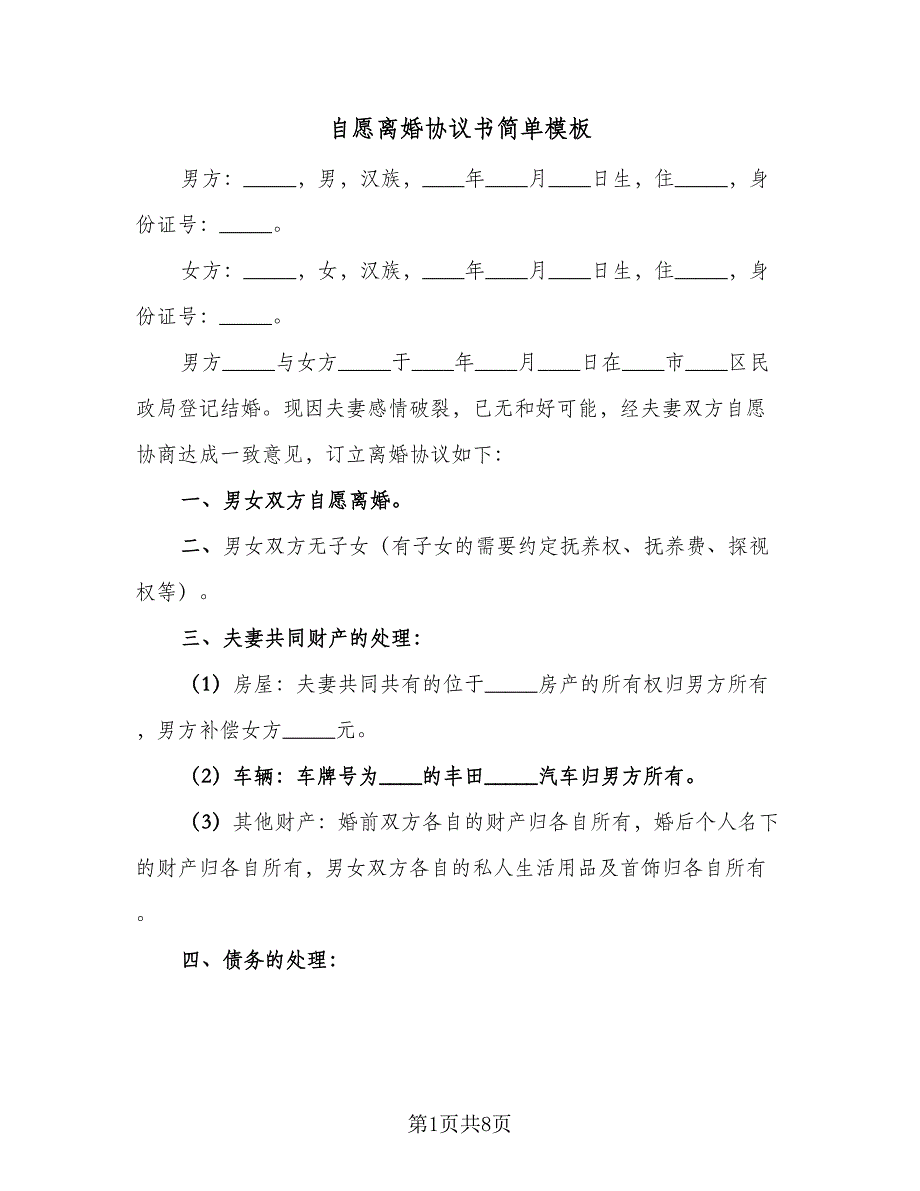 自愿离婚协议书简单模板
男方：_____，男，汉族，____年____月____日生，住_____，身
份证号：_____。
女方：_____，女，汉族，____年____月____日生，住_____，身
份证号：_____。
男方_____与女方_____于____年____月____日在____市____区民
政局登记结婚。现因夫妻感情破裂，已无和好可能，经夫妻双方自愿
协商达成一致意见，订立离婚协议如下：
一、男女双方自愿离婚。
二、男女双方无子女（有子女的需要约定抚养权、抚养费、探视
权等）。
三、夫妻共同财产的处理：
（1）房屋：夫妻共同共有的位于_____房产的所有权归男方所有
，男方补偿女方_____元。
（2）车辆：车牌号为____的丰田_____汽车归男方所有。
（3）其他财产：婚前双方各自的财产归各自所有，婚后个人名下
的财产归各自所有，男女双方各自的私人生活用品及首饰归各自所有
。
四、债务的处理：
第1页共8页